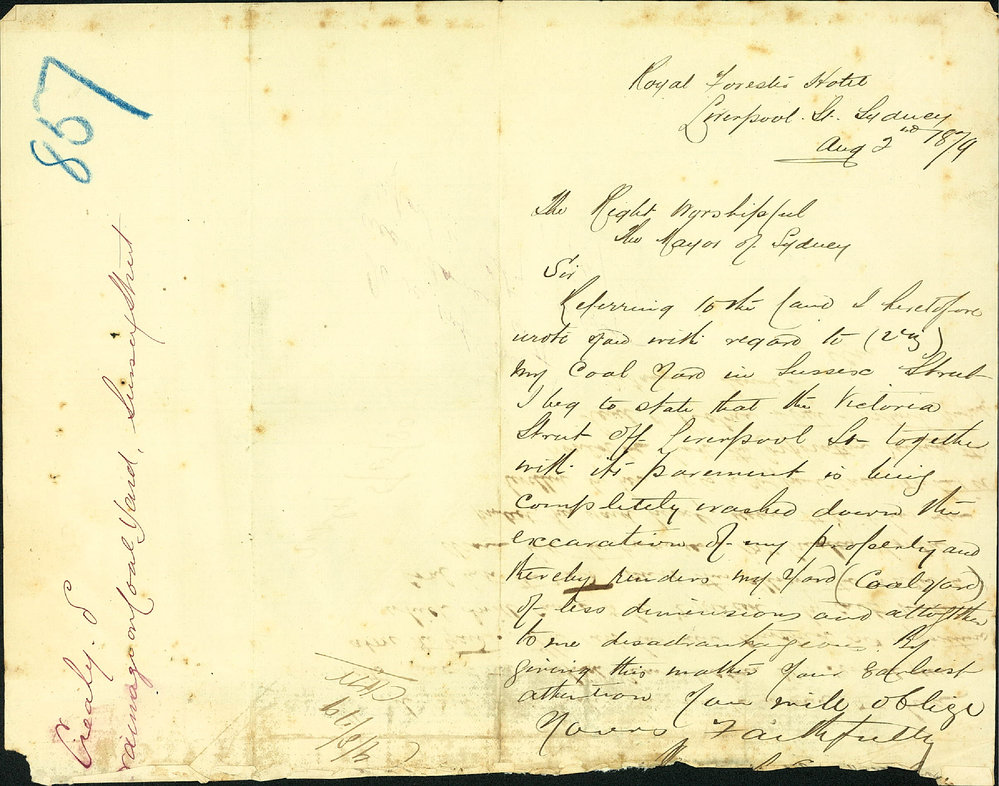 857
Crealy. S
rainage on Coal Yard, Sussex Street
4/8/79
Royal Forester's Hotel
Liverpool. St. Sydney
Aug 2nd 1879
The Right Worshipful
The Mayor of Sydney
Sir
Referring to the land I heretofore
wrote you with regard to (viz)
my Coal Yard in Sussex Street
I beg to state that the Victoria
Street off Liverpool St together
with its pavement is being
completely washed down the
excavation of my property and
thereby renders my Yard (Coal Yard)
of less dimensions and altogether
to me disadvantageous By
giving this matter your earliest
attention You will oblige
Yours Faithfully